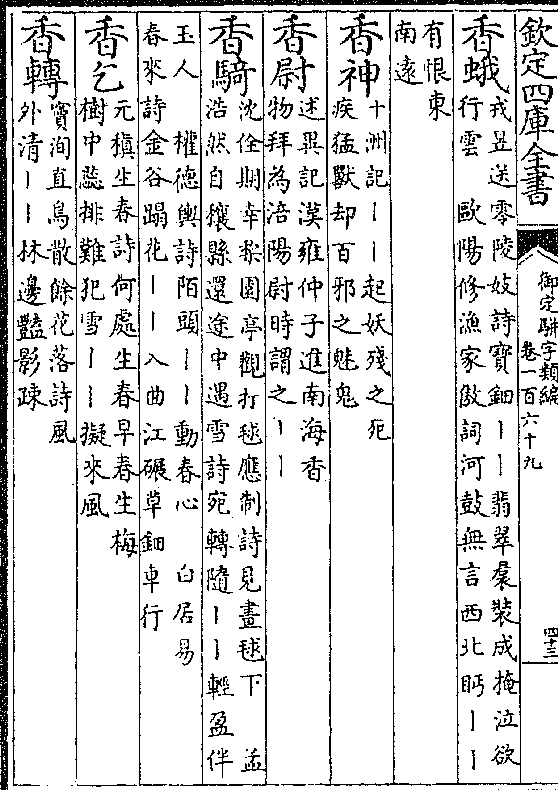 欽定四庫全書
御定駢字類編
卷一百六十九
四十三
香蛾
戎昱送零陵妓詩寶鈿丨丨翡翠裙裝成掩泣欲
行雲　歐陽修漁家傲詞河鼓無言西北眄丨丨
有恨東
南遠
香神
十洲記丨丨起妖殘之死
疾猛獸却百邪之魅鬼
香尉
述異記漢雍仲子進南海香
物拜為涪陽尉時謂之丨丨
香騎
沈佺期幸梨園亭觀打毬應制詩見畫毬下　孟
浩然自穰縣還途中遇雪詩宛轉隨丨丨輕盈伴
玉人　權德輿詩陌頭丨丨動春心　白居易
春來詩金谷蹋花丨丨入曲江碾草鈿車行
香乞
元稹生春詩何處生春早春生梅
樹中蘂排難犯雪丨丨擬來風
香轉
竇洵直鳥散餘花落詩風
外清丨丨林邊豔影疎